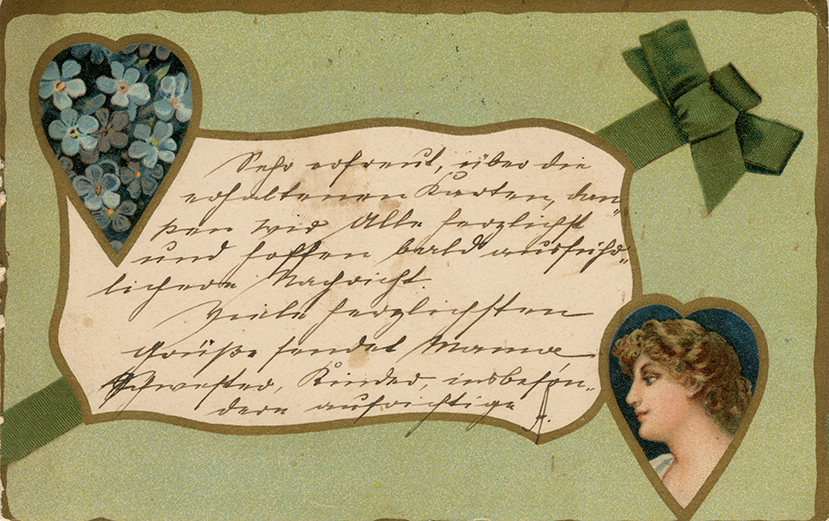 Sehr erfreut, über die
erhaltenen Karten, dan„
ken wir Alle herzlichst
und hoffen bald ausführ„
lichere Nachricht.
Viele herzlichsten
Grüße sendet Mama
Schwester, Kinder, insbeson„
dere aufrichtige A.